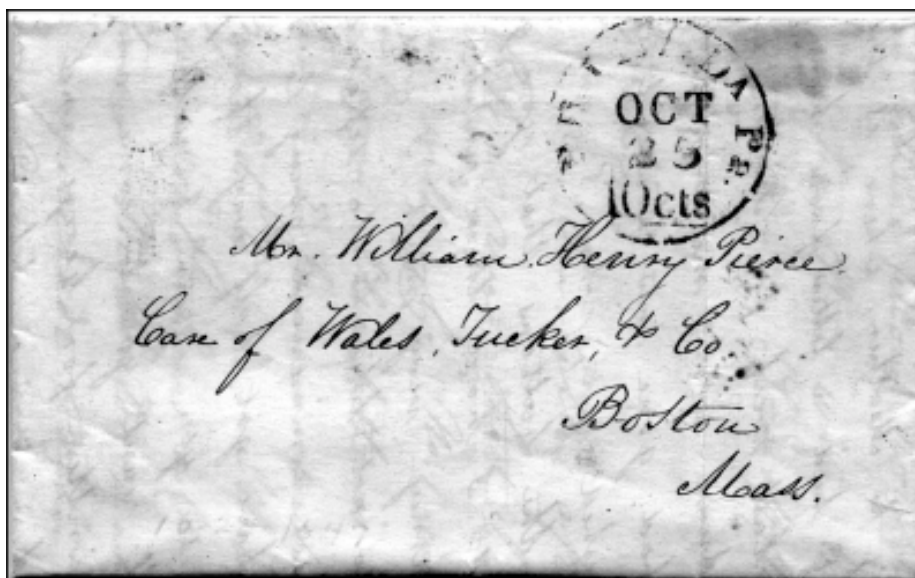 Pa.
OCT
25
10cts
Mr. William Henry Pierce.
Care of Wales, Tucker, & Co
Boston
Mass.